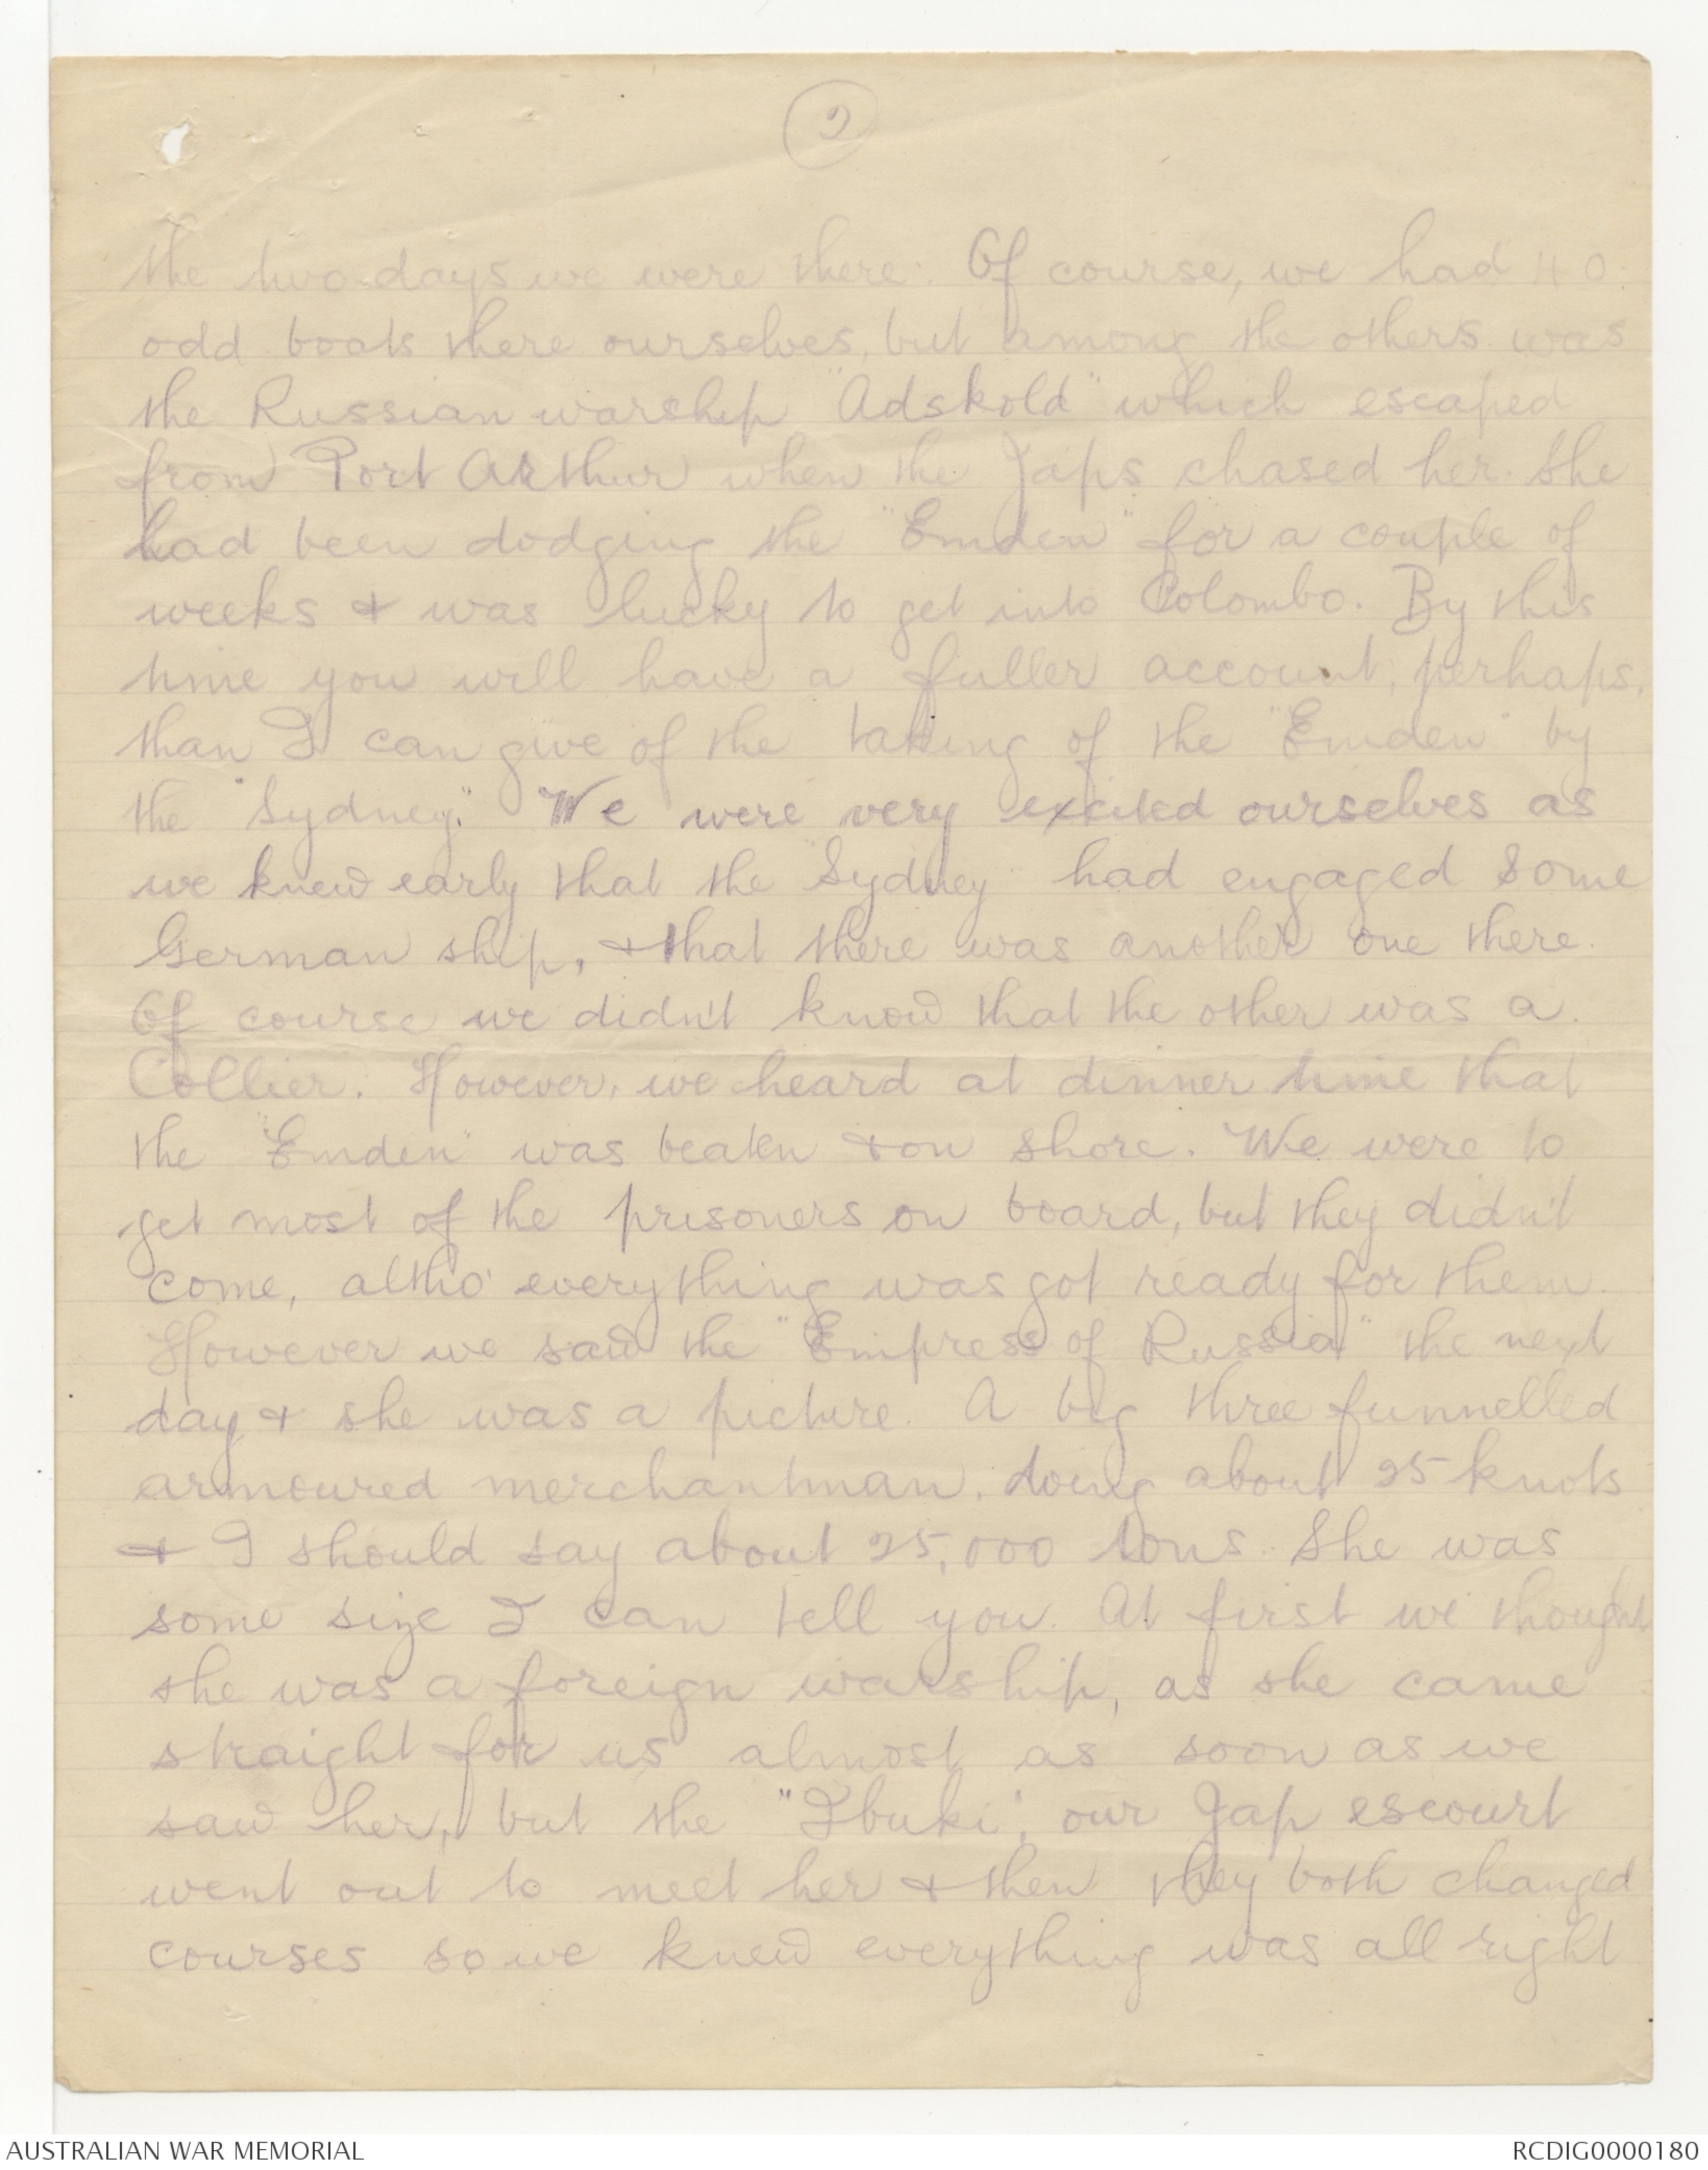 2
the two days we were there. Of course, we had 40
odd boats there ourselves, but among the others was
the Russian warship "Adskold" which escaped
from Port Arthur when the Japs chased her. She
had been dodging the "Emden" for a couple of
weeks & was lucky to get into Colombo. By this
time you will have a fuller account, perhaps,
than I can give of the taking of the "Emden" by
the "Sydney." We were very excited ourselves as
we knew early that the "Sydney" had engaged some
German ship, & that there was another one there.
Of course we didn't know that the other was a
Collier. However, we heard at dinner time that
the "Emden" was beaten & on shore. We were to
get most of the prisoners on board, but they didn't
come, altho' everything was got ready for them.
However we saw the "Empress of Russia" the next
day & she was a picture. A big three funnelled
armoured merchantman, doing about 25 knots
& I should say about 25,000 tons. She was
some size I can tell you. At first we thought
she was a foreign warship, as she came
straight for us almost as soon as we
saw her, but the "Ibuki", our Jap escourt
went out to meet her & then they both changed
courses so we knew everything was all right
AUSTRALIAN WAR MEMORIAL
RCDIG0000180